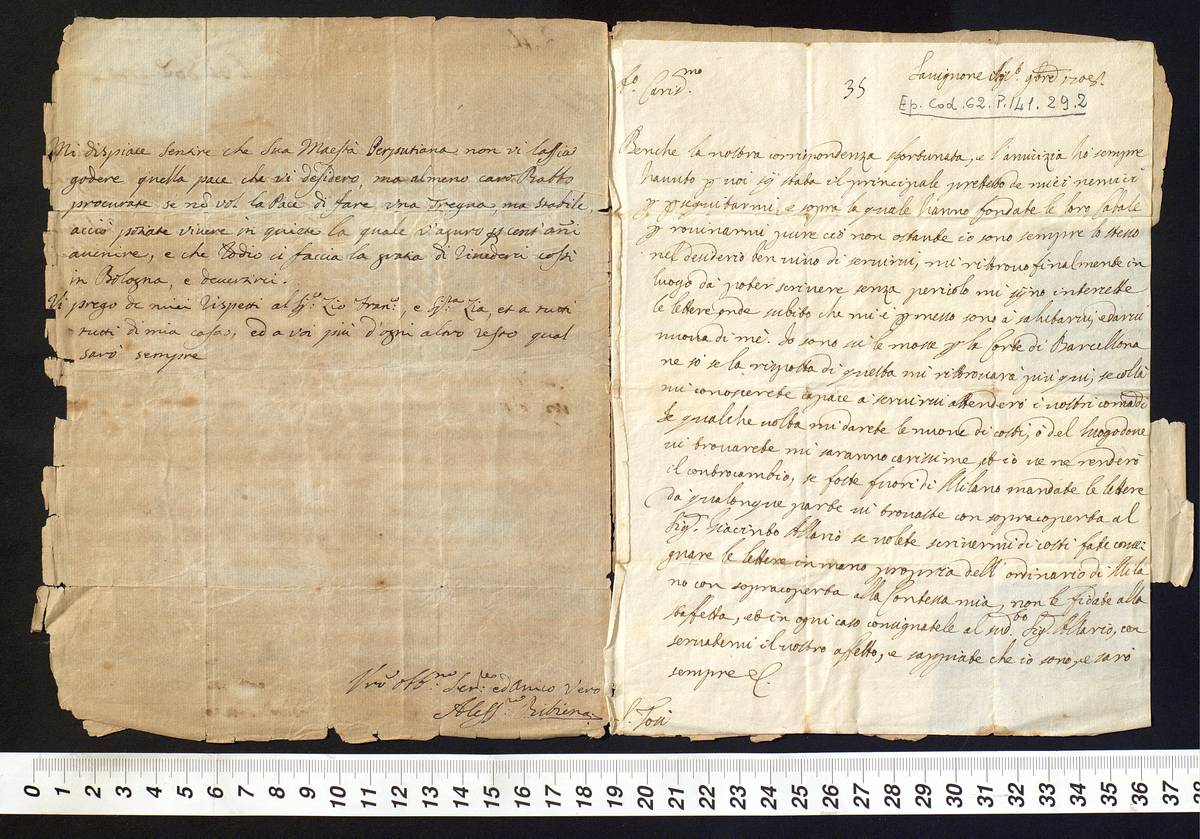 Mi dispiace sentire che Sua Maestà Perpontiana non vi lassia
godere quella pace che vi desidero, ma almeno caro
procurate se nò vol la Pace di fare una Tregua, ma stabile,
acciò potiate vivere in quiete la quale v'aguro p cent'anni
avenire, e che Iddio ci faccia la gratia di vivederci costì
in Bologna, e
Vi prego de miei rispetti al Sig.r Zio Fran.co, e Sig.ra Zia, et a tutti
tutti di mia casa, ed a voi più d'ogni altro resto qual
sarò sempre
Vro Obb.mo Ser.re ed Amico Vero
Aless.ro Bibiena
Caris.mo
35
Savignone 1708.
Ep. Cod. 62. P. 141. 29.2
Benche la nostra corrispondenza sfortunata, e l'amicizia hò sempre
hauuto p voi sij stata il principale pretesto de miei nemici
p p seguitarmi, e sopra la quale hanno fondate le loro
p rouinarmi pure ciò non ostante io sono sempre lo stesso
nel desiderio ben viuo di seruirui, mi ritrouo finalmente in
luogo da poter scriuere senza pericolo mi sijno intercette
le lettere onde subito che mi è p messo sono à salutarui, e darui
nuoua di mè. Io sono sù le mosse p la Corte di Barcellona
ne sò se la risposta di questa mi ritrouarà più qui, se colà
mi conoscerete capace a seruirui attenderò i vostri comādi
Se qualche volta mi darete le nuoue di costì, ò del luogo doue
vi trouarete mi saranno carissime et io ve ne renderò
il controcambio, se foste fuori di Milano mandate le lettere
da qualonque parte vi trouaste con sopracoperta al
Sig.r Giacinto Allario se volete scriuermi di costì fate conse:
gnare le lettere in mano propria dell'ordinario di Mila
no con sopracoperta alla Contessa mia, non le fidate alla
staffetta, et in ogni caso consignatele al sud.to Sig.r Allario, con
seruatemi il vostro affetto, e sappiate che io sono, e sarò
sempre &.
S. Tosi